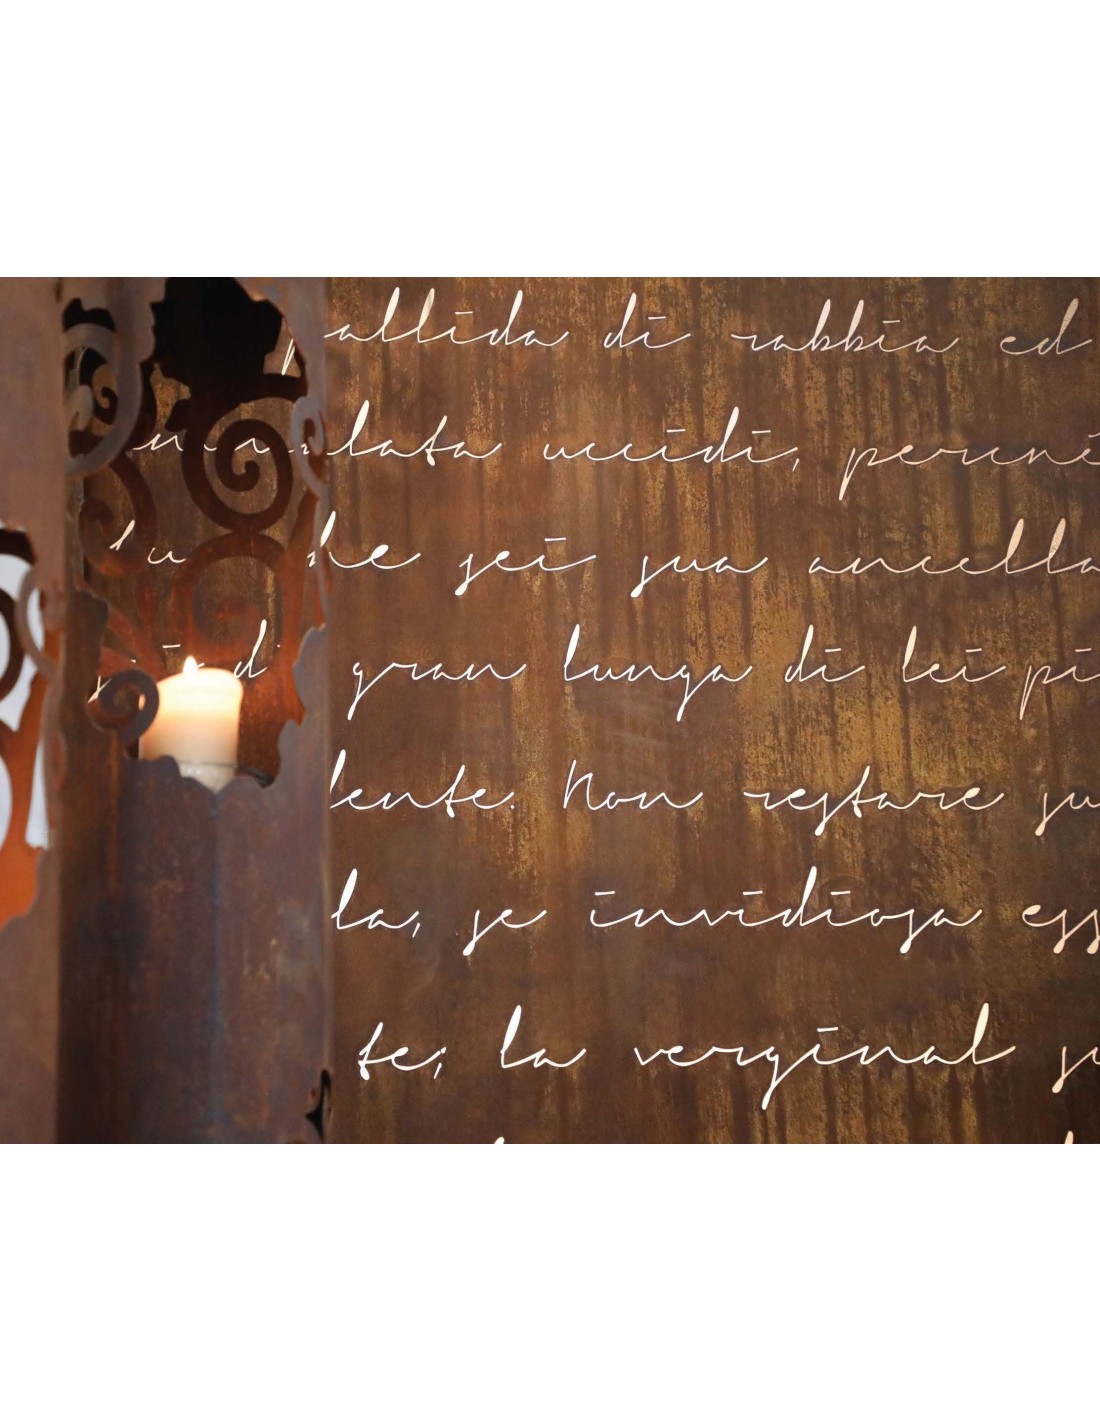 pallida di rabbia ed
lata uccidi, perché
he sei sua ancella
di gran lunga di lei pi
lente. Non restare su
la, se invidiosa ess
te; la verginal s